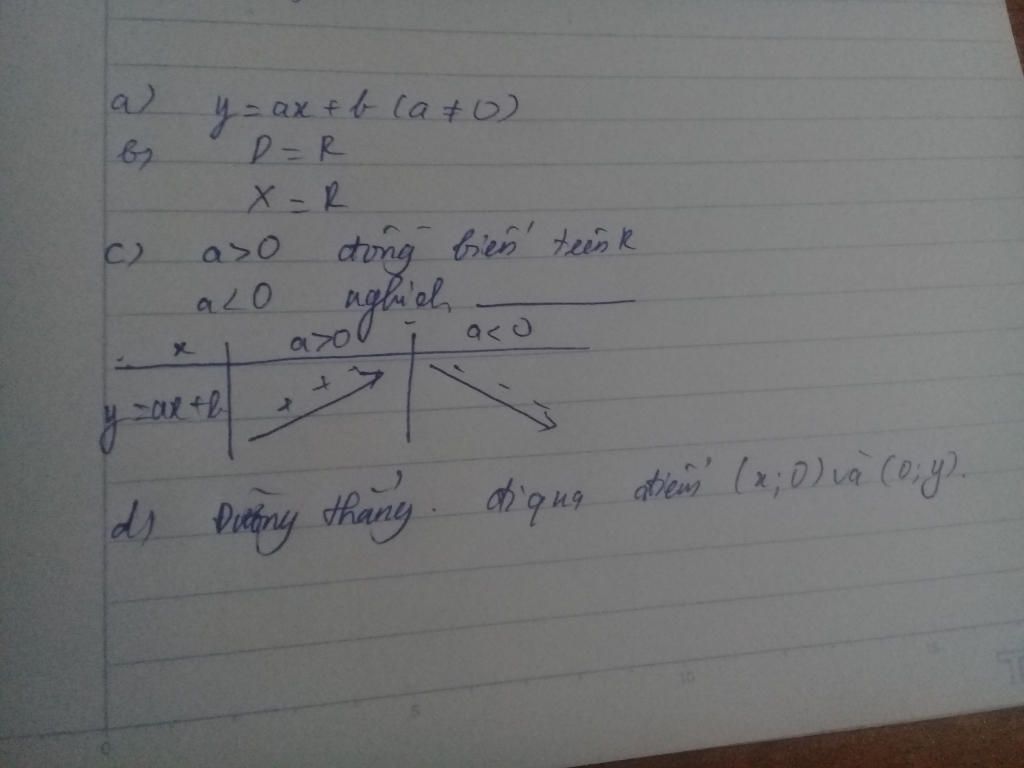 a) y = ax + b (a ≠ 0)
b) D = R
X = R
c) a > 0 đồng biến trên R
a < 0 nghịch
x a > 0 a < 0
y = ax + b + + - - -
d) Đường thẳng. đi qua điểm (x; 0) và (0; y).
0 5 10 15